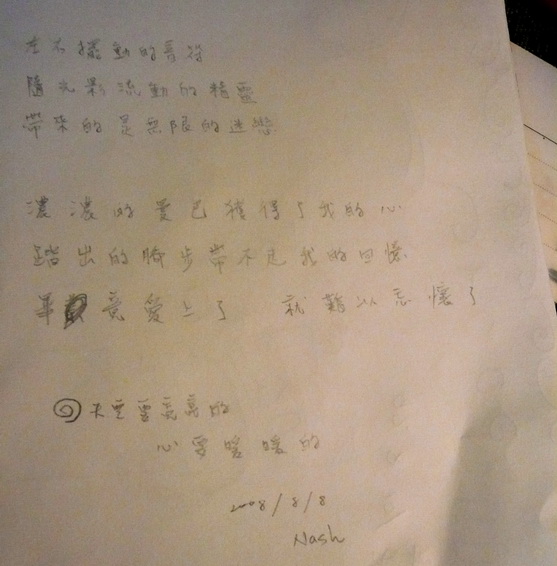 左右擺動的音符
隨光影流動的精靈
帶來的是無限的迷戀
濃濃的愛已獲得了我的心
踏出的腳步帶不走我的回憶
畢竟愛上了 就難以忘懷了
天空要亮亮的
心要暖暖的
2008/8/8
Nash